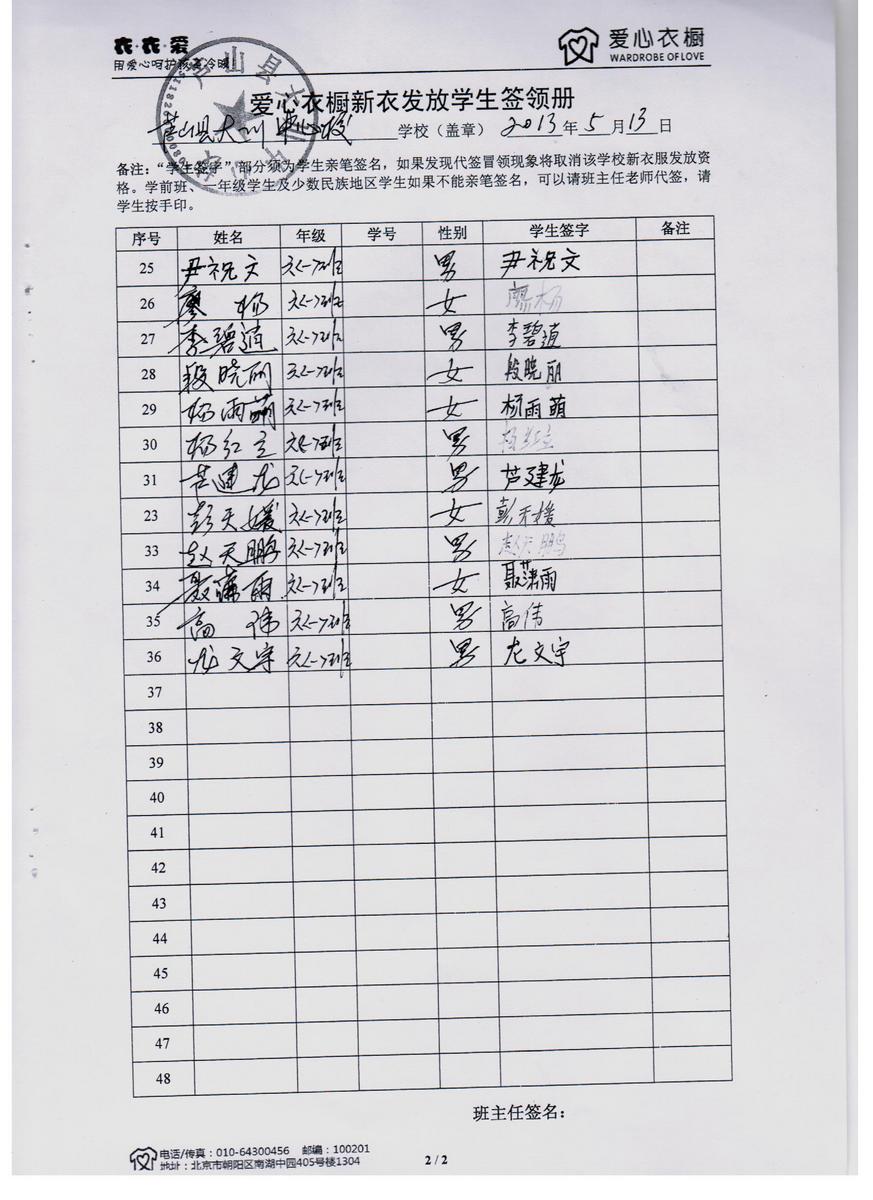 衣·衣·爱
用爱心呵护 冷暖!
爱心衣橱
WARDROBE OF LOVE
爱心衣橱新衣发放学生签领册
芦山县大川中心校 学校（盖章） 2013年5月13日
备注：“学生签字”部分须为学生亲笔签名，如果发现代签冒领现象将取消该学校新衣服发放资
格。学前班、一年级学生及少数民族地区学生如果不能亲笔签名，可以请班主任老师代签，请
学生按手印。
序号 姓名 年级 学号 性别 学生签字 备注
25 尹祝文 六(一)班 男 尹祝文
26 廖杨 六(一)班 女 廖杨
27 李碧道 六(一)班 男 李碧道
28 段晓丽 六(一)班 女 段晓丽
29 杨雨萌 六(一)班 女 杨雨萌
30 杨红立 六(一)班 男 杨红立
31 芦建龙 六(一)班 男 芦建龙
23 彭天媛 六(一)班 女 彭天媛
33 赵天鹏 六(一)班 男 赵天鹏
34 聂潇雨 六(一)班 女 聂潇雨
35 高伟 六(一)班 男 高伟
36 龙文宇 六(一)班 男 龙文宇
37
38
39
40
41
42
43
44
45
46
47
48
班主任签名：
电话/传真：010-64300456 邮编：100201
地址：北京市朝阳区南湖中园405号楼1304
2 / 2